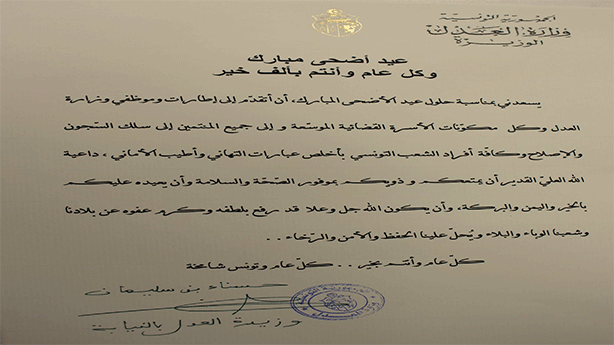 الجمهورية التونسية
وزارة العدل
الوزيرة
عيد أضحى مبارك
وكل عام وأنتم بألف خير
يسعدني بمناسبة حلول عيد الأضحى المبارك، أن أتقدّم إلى إطارات وموظفي وزارة
العدل وكل مكوّنات الأسرة القضائية الموسّعة و إلى جميع المنتمين إلى سلك السجون
والإصلاح وكافّة أفراد الشعب التونسي بأخلص عبارات التهاني وأطيب الأماني، داعية
الله العليّ القدير أن يمتعكم و ذويكم بموفور الصّحّة والسلامة وأن يعيده عليكم
بالخير واليمن والبركة، وأن يكون الله جل وعلا قد رفع بلطفه وكرم عفوه عن بلادنا
وشعبنا الوباء والبلاء ويُحلّ علينا الحفظ والأمن والرّخاء . .
كلّ عام وأنتم بخير . . كلّ عام وتونس شامخة
حسناء بن سليمان
وزيرة العدل بالنيابة